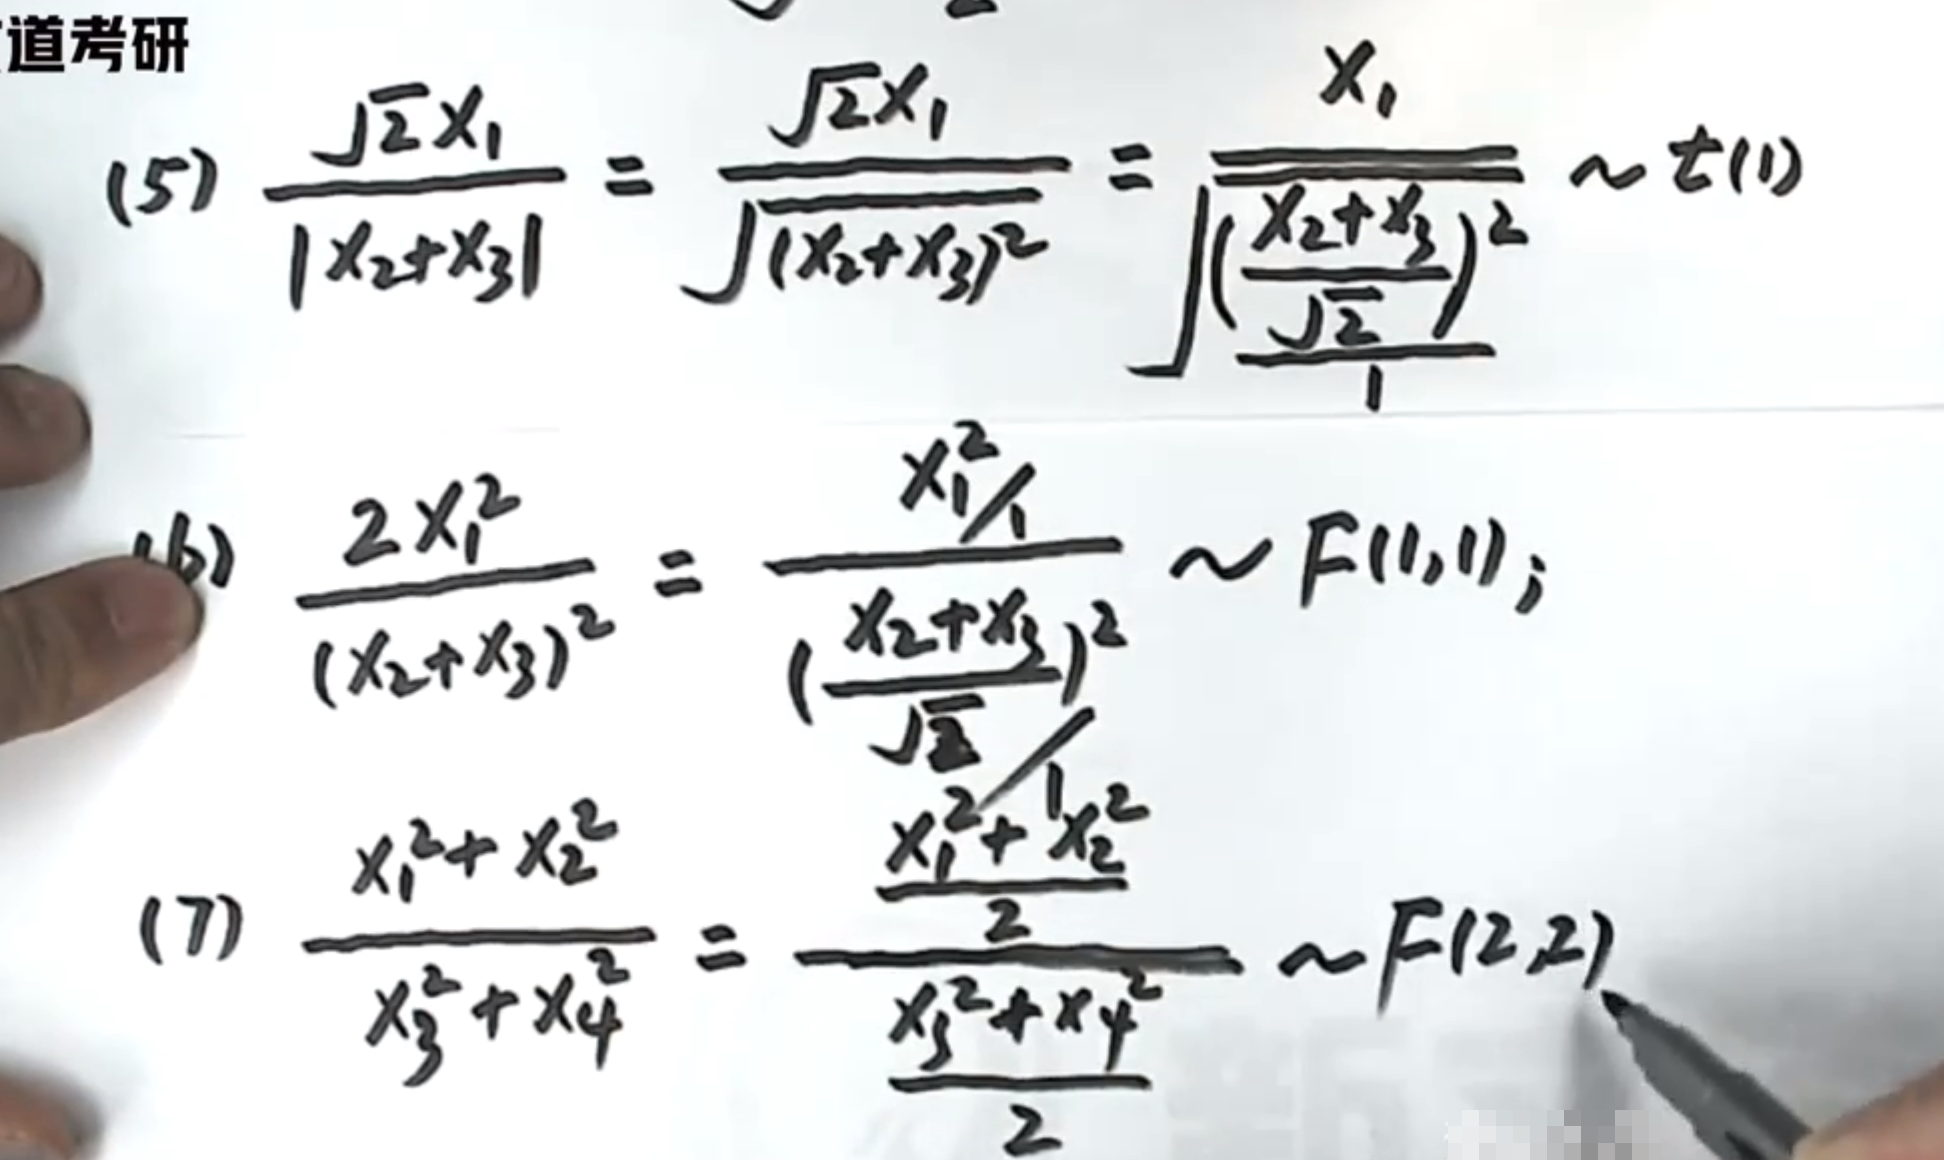 道考研
(5) \frac{\sqrt{2}X_1}{|X_2+X_3|} = \frac{\sqrt{2}X_1}{\sqrt{(X_2+X_3)^2}} = \frac{X_1}{\sqrt{\frac{(\frac{X_2+X_3}{\sqrt{2}})^2}{1}}} ~ t(1)
(6) \frac{2X_1^2}{(X_2+X_3)^2} = \frac{X_1^2/1}{(\frac{X_2+X_3}{\sqrt{2}})^2/1} ~ F(1,1);
(7) \frac{X_1^2+X_2^2}{X_3^2+X_4^2} = \frac{\frac{X_1^2+X_2^2}{2}}{\frac{X_3^2+X_4^2}{2}} ~ F(2,2)